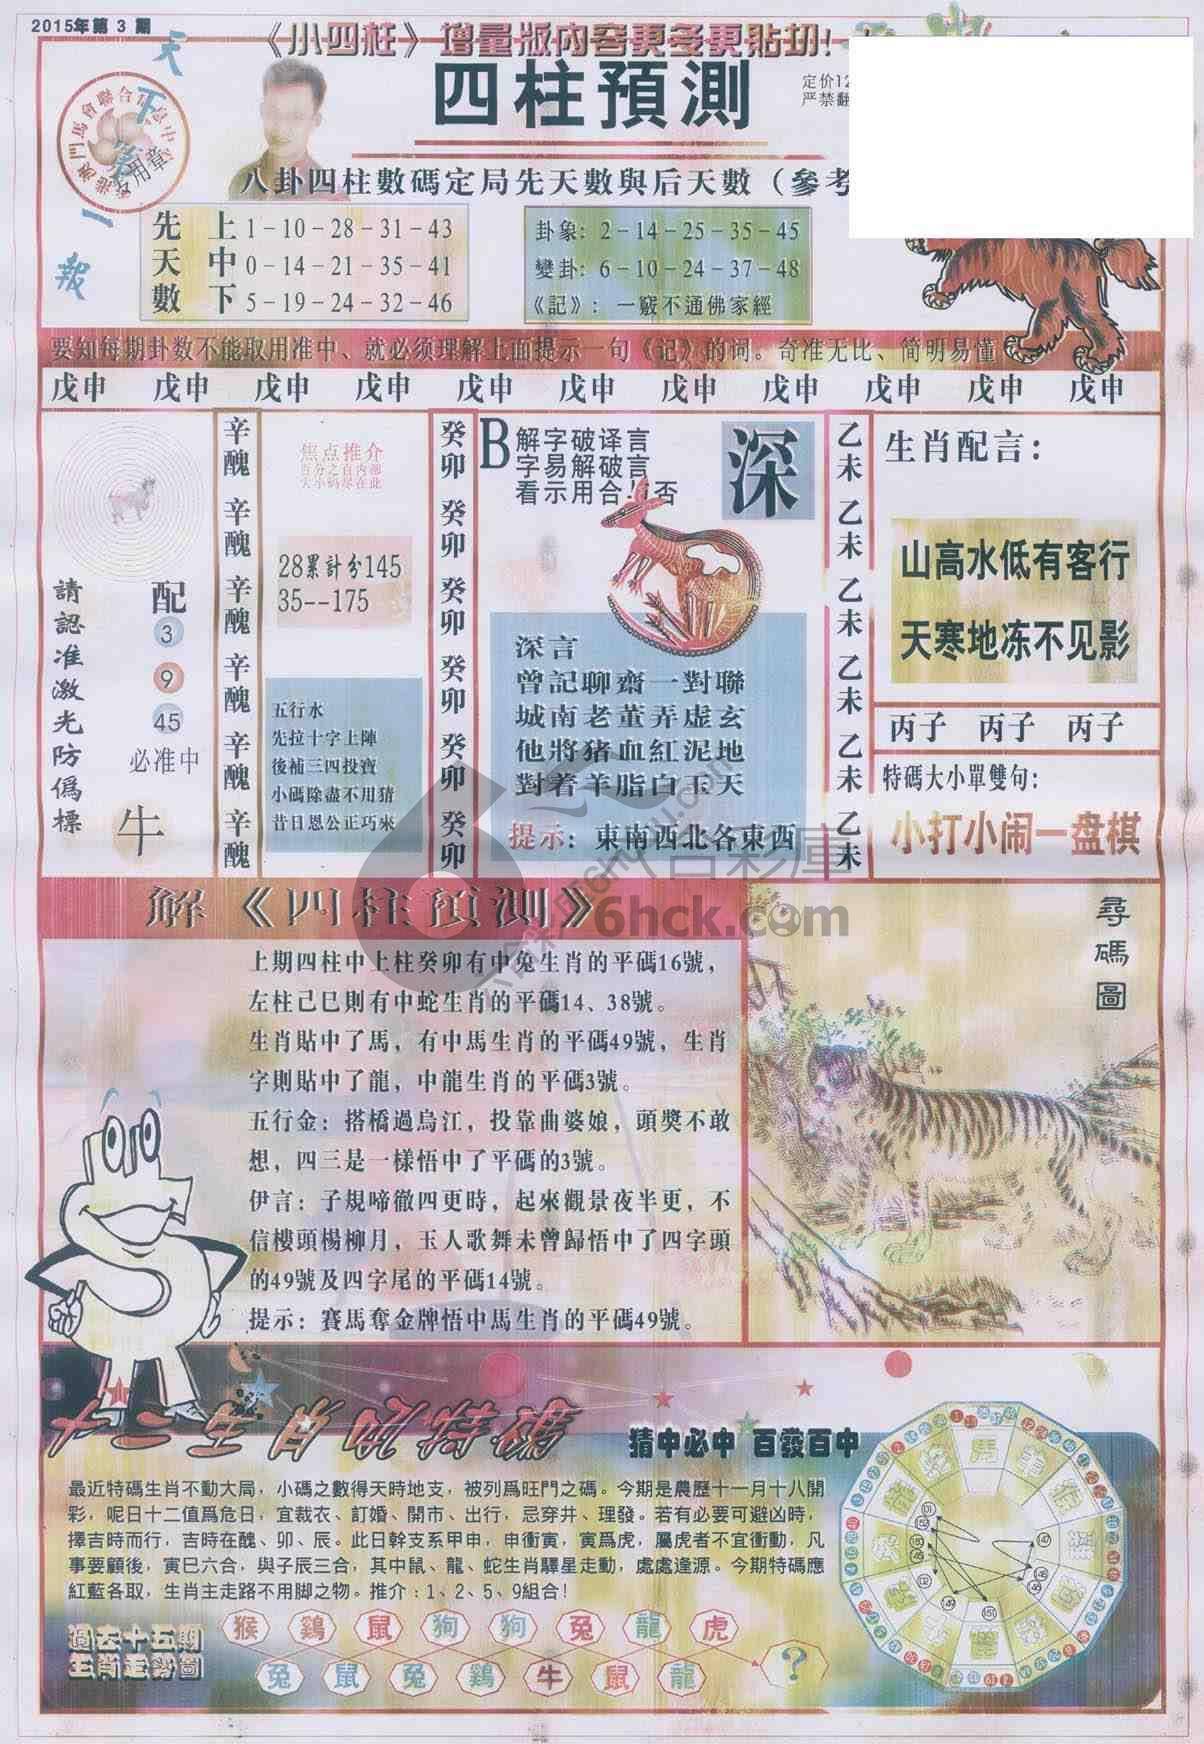 2015年第 3 期
《小四柱》增量版内容更多更貼切!
天下第一報
四柱預測
定价12
严禁翻
香港澳門馬會聯合信息中心
專用章
八卦四柱數碼定局先天數與后天數（參考
先天數
上 1－10－28－31－43
中 0－14－21－35－41
下 5－19－24－32－46
卦象: 2－14－25－35－45
變卦: 6－10－24－37－48
《記》: 一竅不通佛家經
要知每期卦数不能取用准中、就必须理解上面提示一句《记》的词。奇准无比、简明易懂
戊申 戊申 戊申 戊申 戊申 戊申 戊申 戊申 戊申 戊申 戊申
請認准激光防僞標
配
3
9
45
必准中
牛
辛醜 辛醜 辛醜 辛醜 辛醜 辛醜
焦点推介
百分之百内部
大小码尽在此
28累計分145
35--175
五行水
先拉十字上陣
後補三四投寶
小碼除盡不用猜
昔日恩公正巧來
癸卯 癸卯 癸卯 癸卯 癸卯 癸卯
B 解字破译言
字易解破言
看示用合 否
深
深言
曾記聊齋一對聯
城南老董弄虛玄
他將猪血紅泥地
對着羊脂白玉天
提示: 東南西北各東西
乙未 乙未 乙未 乙未 乙未 乙未
生肖配言:
山高水低有客行
天寒地冻不见影
丙子 丙子 丙子
特碼大小單雙句:
小打小闹一盘棋
六合彩庫
6hck.com
解《四柱預測》
上期四柱中上柱癸卯有中兔生肖的平碼16號，
左柱己巳則有中蛇生肖的平碼14、38號。
生肖貼中了馬，有中馬生肖的平碼49號，生肖
字則貼中了龍，中龍生肖的平碼3號。
五行金: 搭橋過烏江，投靠曲婆娘，頭獎不敢
想，四三是一樣悟中了平碼的3號。
伊言: 子規啼徹四更時，起來觀景夜半更，不
信樓頭楊柳月，玉人歌舞未曾歸悟中了四字頭
的49號及四字尾的平碼14號。
提示: 賽馬奪金牌悟中馬生肖的平碼49號。
尋碼圖
猜中必中 百發百中
最近特碼生肖不動大局，小碼之數得天時地支，被列爲旺門之碼。今期是農歷十一月十八開
彩，呢日十二值爲危日，宜裁衣、訂婚、開市、出行，忌穿井、理發。若有必要可避凶時，
擇吉時而行，吉時在醜、卯、辰。此日幹支系甲申，申衝寅，寅爲虎，屬虎者不宜衝動，凡
事要顧後，寅巳六合，與子辰三合，其中鼠、龍、蛇生肖驛星走動，處處逢源。今期特碼應
紅藍各取，生肖主走路不用脚之物。推介:1、2、5、9組合！
過去十五期
生肖走勢圖
猴 鷄 鼠 狗 狗 兔 龍 虎
兔 鼠 兔 鷄 牛 鼠 龍 ?